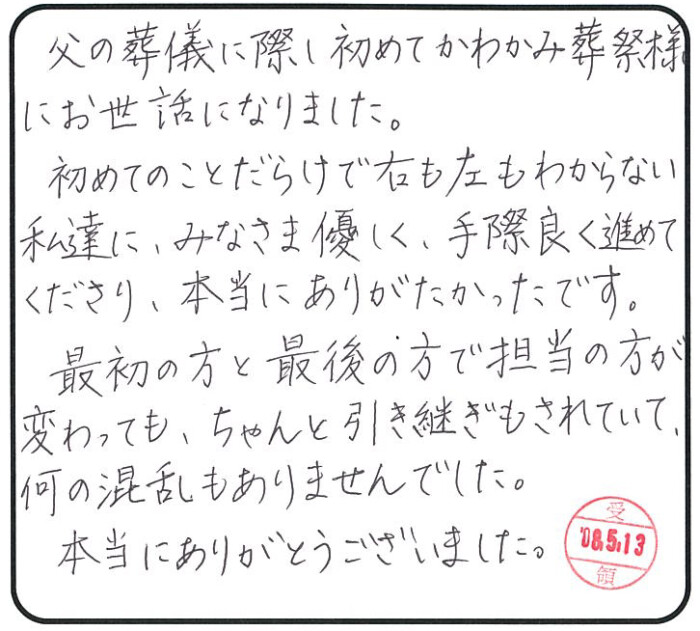 父の葬儀に際し初めてかわかみ葬祭様
にお世話になりました。
初めてのことだらけで右も左もわからない
私達に、みなさま優しく、手際良く進めて
くださり、本当にありがたかったです。
最初の方と最後の方で担当の方が
変わっても、ちゃんと引き継ぎもされていて、
何の混乱もありませんでした。
本当にありがとうございました。
受
'08.5.13
領